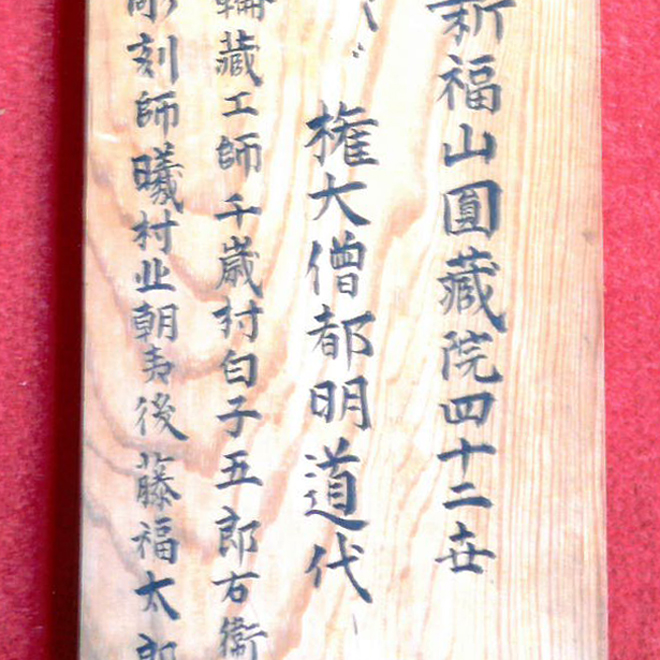 新福山圓藏院四十二世
権大僧都明道代
輪藏工師千歳村白子五郎右衛
彫刻師曦村北朝夷後藤福太郎